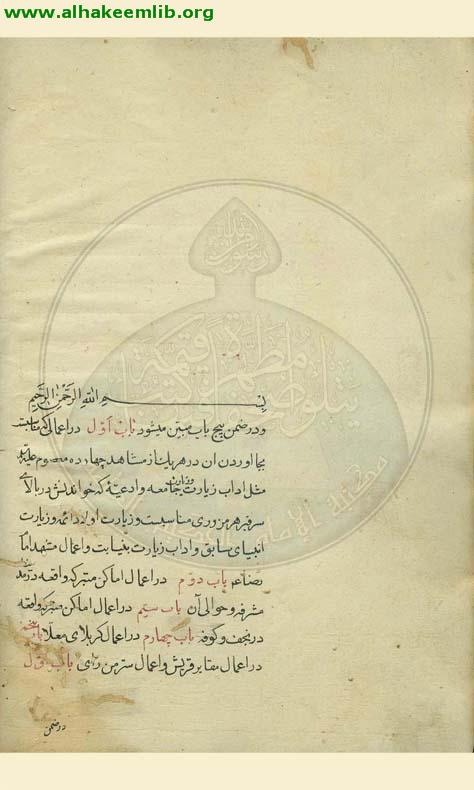 www.alhakeemlib.org
بسم الله الرحمن الرحیم
ودر ضمن پنج باب مبین میشود باب اول در اعمالی که مناسبت
بجا اوردن ان در هریک از مشاهد چهارده معصوم علیه
مثل اداب زیارت وزیارت جامعه وادعیهٔ که خواندنش در بالای
سر قبر هر مزوری مناسبست وزیارت اولاد ائمه وزیارت
انبیای سابق واداب زیارت بنیابت واعمال مشهد امام
رضا عم باب دوم در اعمال اماکن متبرکه واقعه در مدینه
مشرفه وحوالی آن باب سیم در اعمال اماکن متبرکه واقعه
در نجف وکوفه باب چهارم در اعمال کربلای معلا باب پنجم
در اعمال مقابر قریش واعمال سر من رای باب اول
در ضمن
مكتبة الإمام